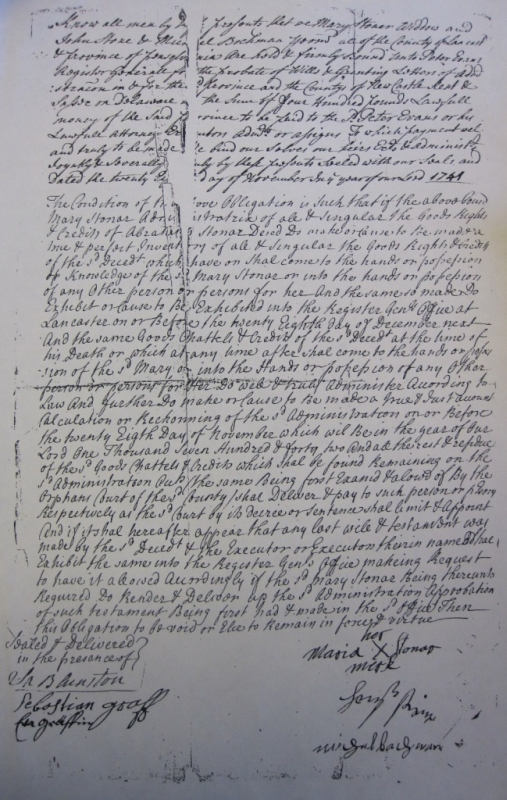 Know all men by presents that we Mary Stoner Widdow and
John Stone & Mic el Bachman yeoms all of the County of Lancast
& Province of Pensyl nia Are hold & firmly bound unto Peter Evans
Register Generale for the probate of Wills & Granting Letters of Adm
istracon in & for the Province and the Countys of New Castle Kent &
Sussex on Delaware the Sum of four Hundred pounds Lawfull
money of the said Province to be paid to the sd Peter Evans or his
Lawfull Attorney Ex utors admrs or assigns To which payment wel
and truly to be made We bind our Selves our heirs Exrs & Administr
Joyntly & Severally ly by these presents Sealed with our Seals and
Dated the twenty day of November In ye year of our Lord 1741
The Condition of th ove Obligation is Such that if the above bound
Mary Stonar Adm istratrix of all & Singular the Goods Rights
& Credits of Abraham Stonar Decd Do make or Cause to be made a
true & perfect Invent ry of all & Singular the Goods Rights & Credits
of the sd Decedt which have or shal come to the hands or possession
or Knowledge of the sd Mary Stonar or into the hands or possession
of any Other person or persons for her And the same so made Do
Exhibit or Cause to Be Exhibited into the Register Genls Office at
Lancaster on or Before the twenty Eighth day of December next
And the same Goods Chattels & Credits of the sd Decdt at the time of
his Death or which at any time after shal come to the hands or posses
sion of the sd Mary or into the Hands or possession of any Other
person or persons for Her Do well & truly Administer According to
Law And further Do make or Cause to be made a true & Just account
Calculation or Reckonning of the sd Administration on or Before
the twenty Eigh Day of November which wil Be in the year of our
Lord One Thousand Seven Hundred & forty two And all the rest & residue
of the sd Goods Chattels & Credits which shal be found Remaining on the
sd Administration Acct the same Being first Examd & alowd of By the
Orphans Court of the sd County shal Deliver & pay to such person or psons
Respectively as the sd Court by its decree or sentence shal limit & Appoint
And if it shal hereafter appear that any last will & testament was
made by the sd Decedt & the Executor or Executors therin named shal
Exhibit the same into the Register Genls Office makeing Request
to have it alowed Accordingly if the sd Mary Stonae Being thereunto
Required Do Render & Deliver up the sd Administration Approbation
of such testament Being first had & made in the sd Office Then
this Obligation to be void or Else to Remain in force & virtue
Sealed & Delivered
in the presence of
Sebastian graff
her
Maria X Stonar
mark